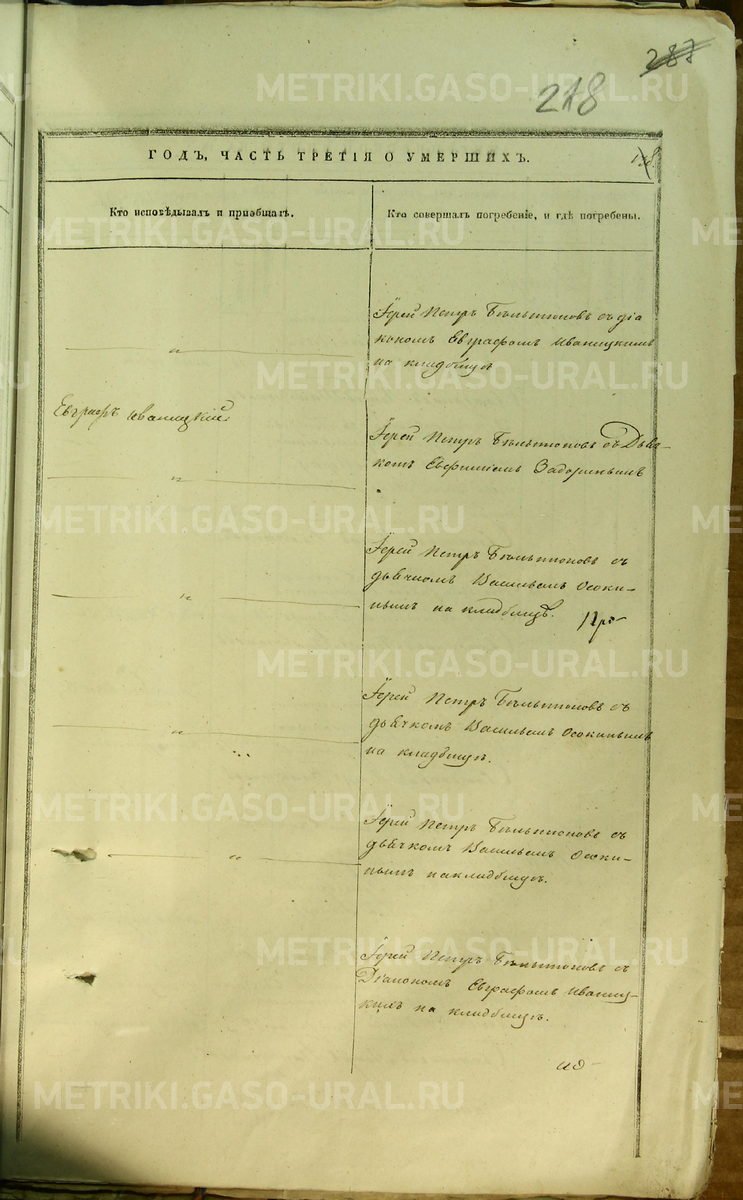 287
218
ГОДЪ, ЧАСТЬ ТРЕТІЯ О УМЕРШИХЪ.
Кто исповѣдывалъ и пріобщалъ.
Кто совершалъ погребеніе, и гдѣ погребены.
Іерей Петръ Бѣльтюковъ съ діа
кономъ Евграфомъ Иваницкимъ
на кладбищѣ
Евграфъ Иваницкій
Іерей Петръ Бѣльтюковъ съ Дья-
комъ
Іерей Петръ Бѣльтюковъ съ
дьячкомъ Васильемъ Осоки-
нымъ на кладбищѣ.
Іерей Петръ Бѣльтюковъ съ
дьячкомъ Васильемъ Осокинымъ
на кладбищѣ.
Іерей Петръ Бѣльтюковъ съ
дьячкомъ Васильемъ Осоки-
нымъ на кладбищѣ.
Іерей Петръ Бѣльтюковъ съ
Діакономъ Евграфомъ Иваниц-
кимъ на кладбищѣ.
METRIKI.GASO-URAL.RU